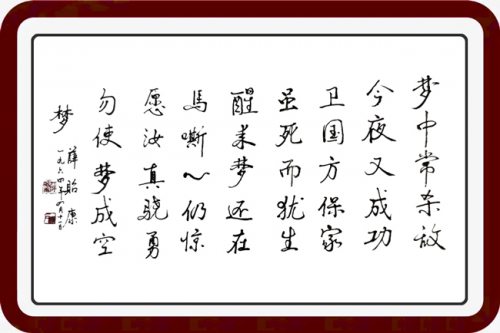 梦中常杀敌
今夜又成功
卫国方保家
虽死而犹生
醒来梦还在
马嘶心仍惊
愿汝真骁勇
勿使梦成空
梦
薛贻康
一九六四年